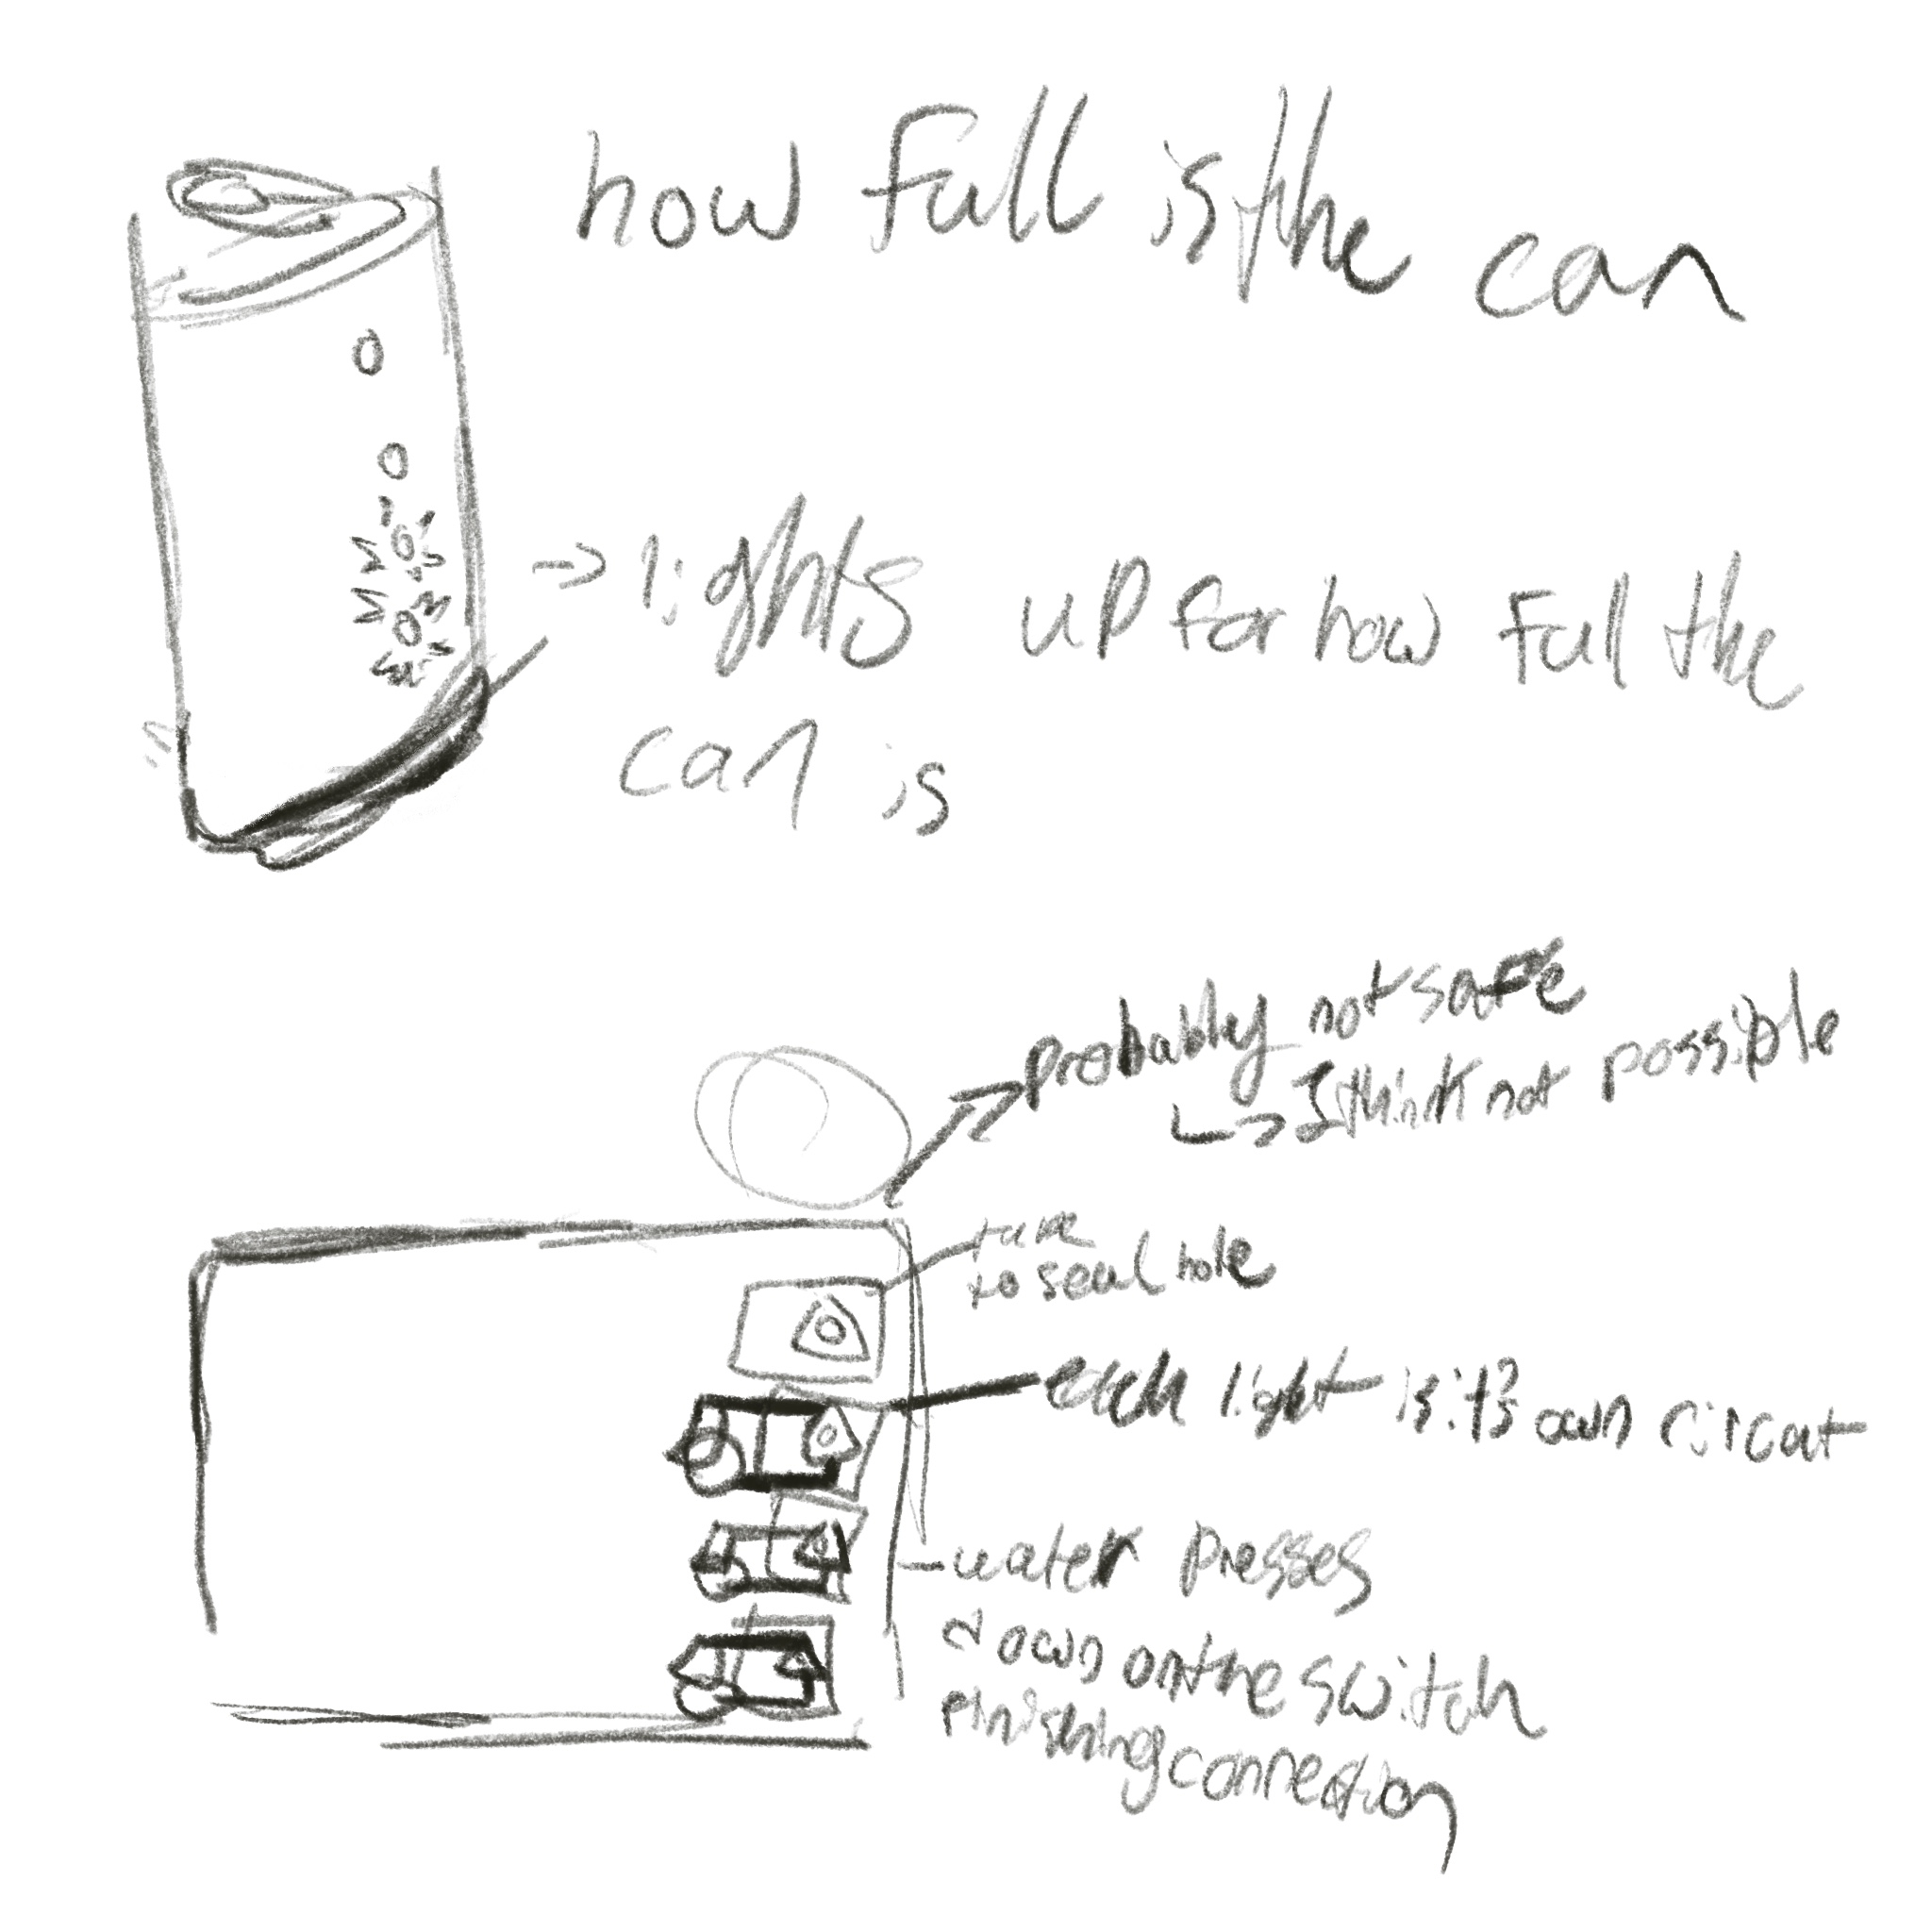 how full is the can
→ lights up for how full the
can is
probably not safe
↳ I think not possible
to seal hole
each light is it's own circut
- water presses
down on the switch
finishing connection